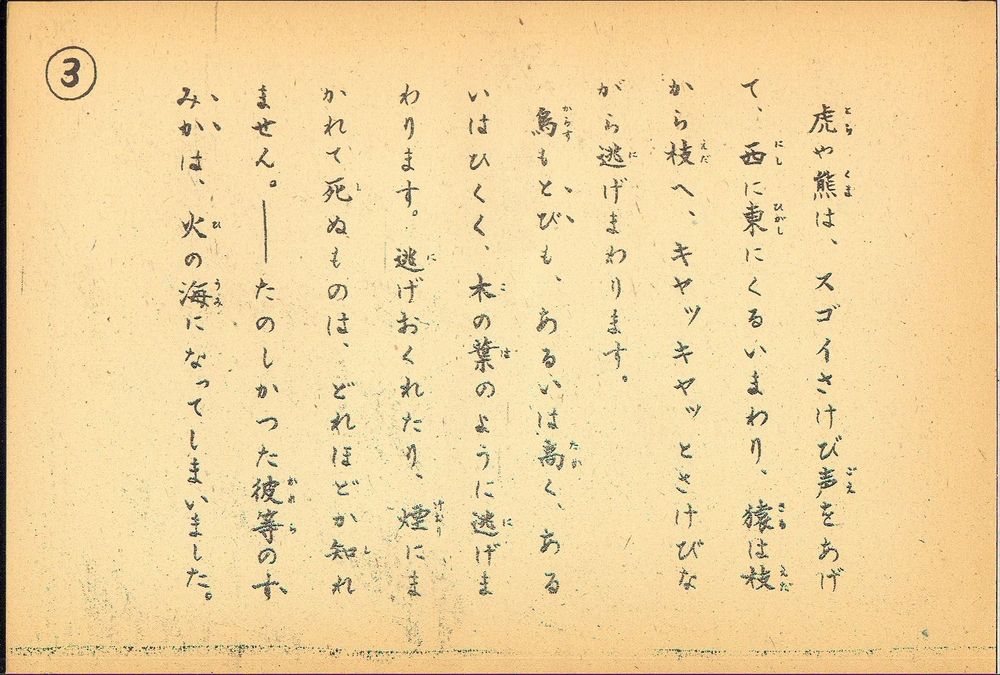 ③
虎や熊は、スゴイさけび声をあげ
て、西に東にくるいまわり、猿は枝
から枝へ、キャッキャッとさけびな
がら逃げまわります。
烏もとびも、あるいは高く、ある
いはひくく、木の葉のように逃げま
わります。逃げおくれたり、煙にま
かれて死ぬものは、どれほどか知れ
ません。――たのしかつた彼等のす
みかは、火の海になってしまいました。